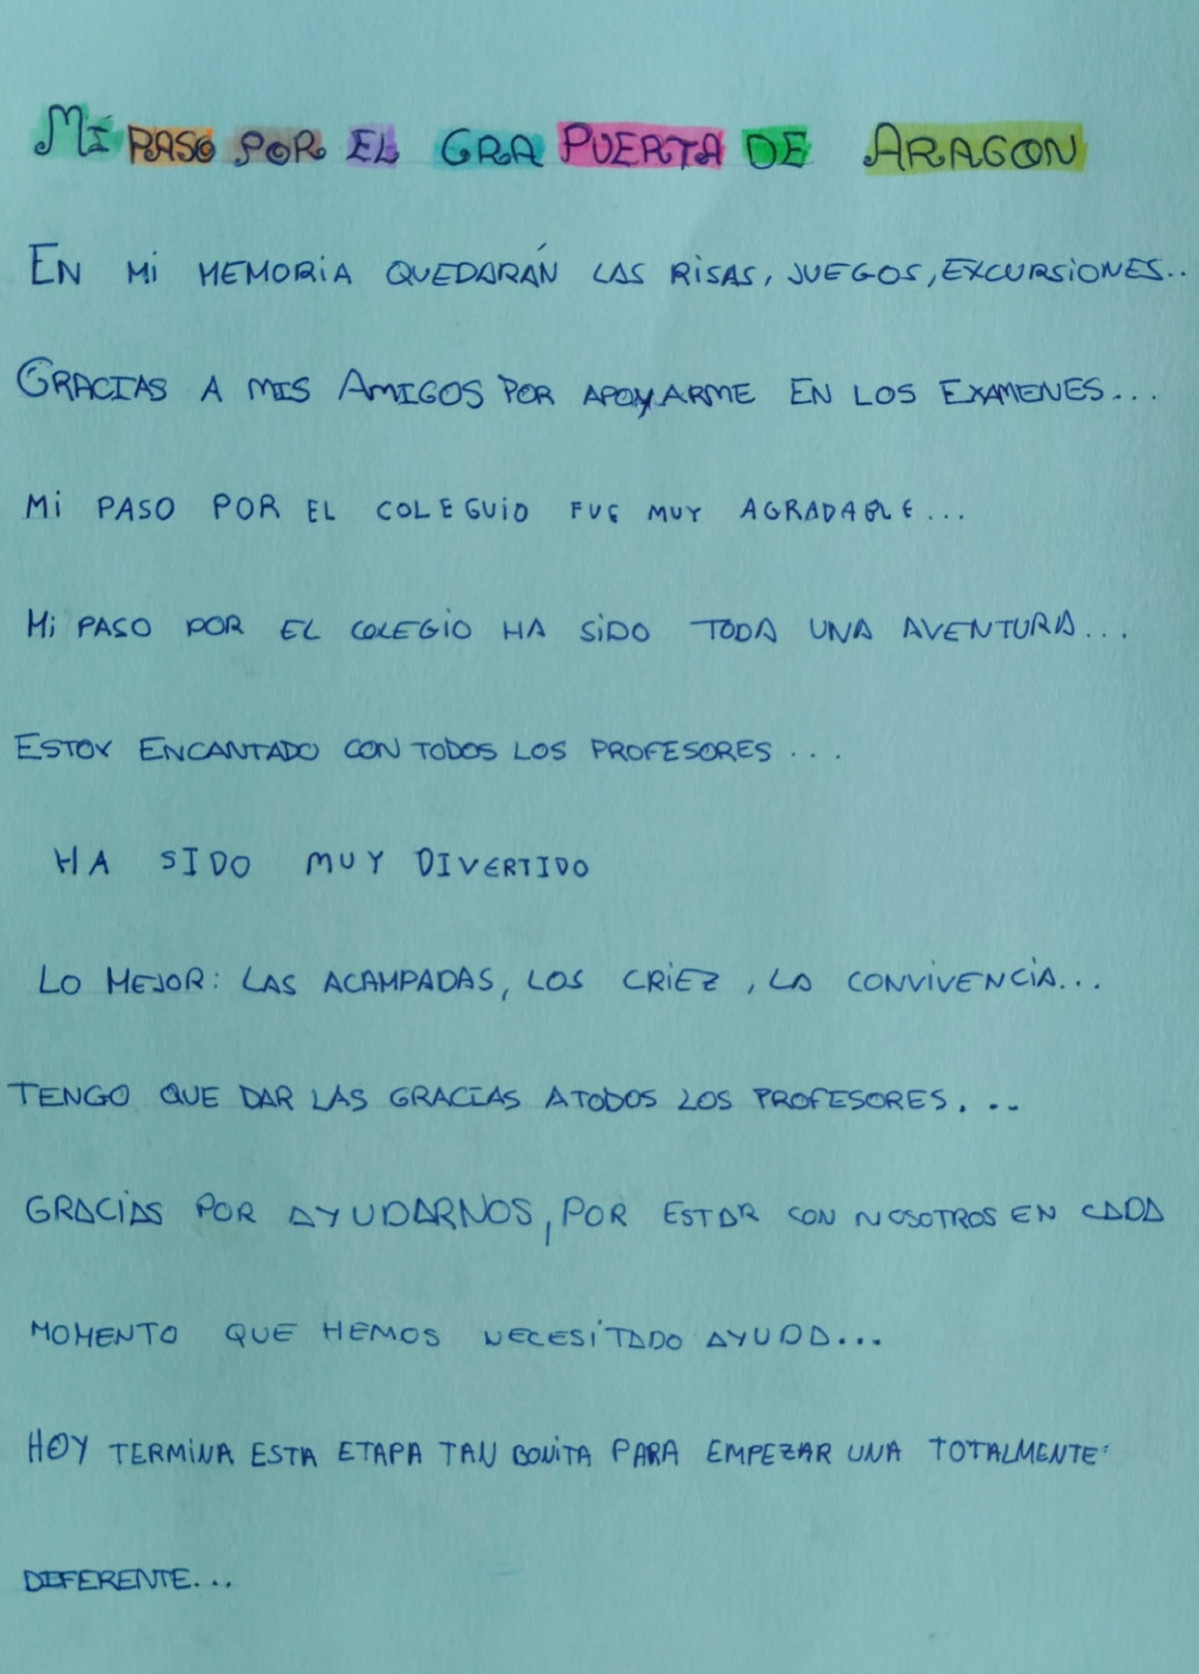 Mi PASO POR EL CRA PUERTA DE ARAGON
EN Mi MEMORiA QUEDARÁN LAS RiSAS, JUEGOS, EXCURSiONES..
GRACIAS A MIS AMIGOS POR APOYARME EN LOS EXAMENES...
Mi PASO POR EL COLEGUiO FUE MUY AGRADABLE...
Mi PASO POR EL COLEGiO HA SiDO TODA UNA AVENTURA...
ESTOY ENCANTADO CON TODOS LOS PROFESORES...
HA SIDO MUY DIVERTIDO
LO MEJOR: LAS ACAMPADAS, LOS CRiEZ, LA CONViVENCiA...
TENGO QUE DAR LAS GRACIAS A TODOS LOS PROFESORES...
GRACiAS POR AYUDARNOS, POR ESTAR CON NOSOTROS EN CADA
MOMENTO QUE HEMOS NECESiTADO AYUDA...
HOY TERMiNA ESTA ETAPA TAN BONiTA PARA EMPEZAR UNA TOTALMENTE
DIFERENTE...